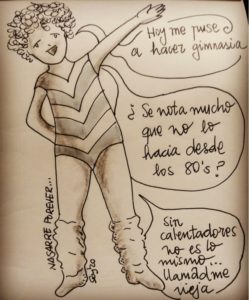 Hoy me puse
a hacer gimnasia
¿Se nota mucho
que no lo
hacía desde
los 80's?
Sin
calentadores
no es lo
mismo...
llamadme
vieja
NASARRE FOREVER...